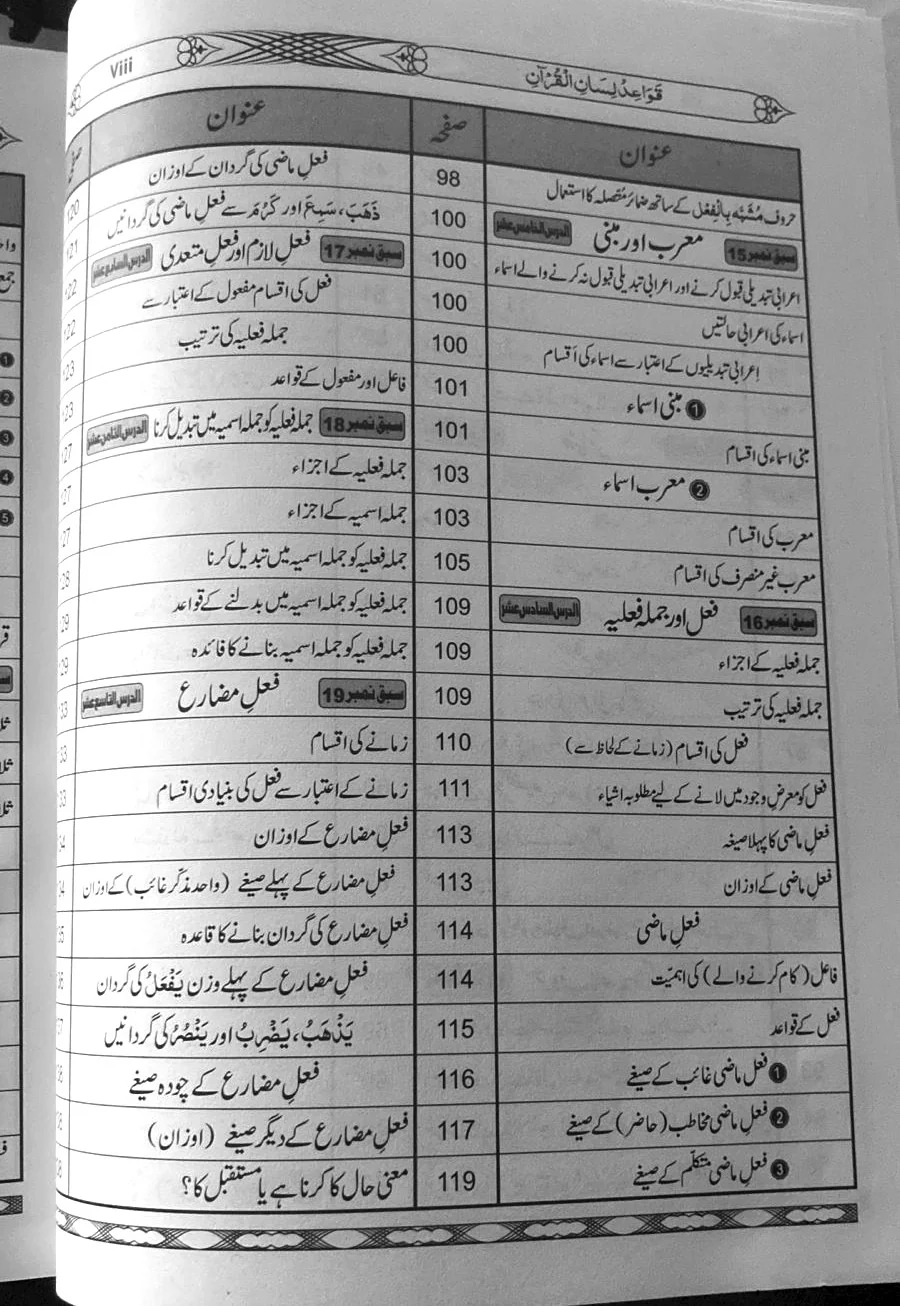 Viii
قَوَاعِدُ لِسَانِ الْقُرْآنِ
عنوان
صفحہ
حروف مُشَبَّہ بِالْفِعْل کے ساتھ ضمائر متصلہ کا استعمال 98
سبق نمبر 15 معرب اور مبنی الدرس الخامس عشر 100
اعرابی تبدیلی قبول کرنے اور اعرابی تبدیلی قبول نہ کرنے والے اسماء 100
اسماء کی اعرابی حالتیں 100
اِعرابی تبدیلیوں کے اعتبار سے اسماء کی اَقسام 100
❶ مبنی اسماء 101
مبنی اسماء کی اقسام 101
❷ معرب اسماء 103
معرب کی اقسام 103
معرب غیر منصرف کی اقسام 105
سبق نمبر 16 فعل اور جملہ فعلیہ الدرس السادس عشر 109
جملہ فعلیہ کے اجزاء 109
جملہ فعلیہ کی ترتیب 109
فعل کی اقسام (زمانے کے لحاظ سے) 110
فعل کو معرضِ وجود میں لانے کے لیے مطلوبہ اشیاء 111
فعلِ ماضی کا پہلا صیغہ 113
فعلِ ماضی کے اوزان 113
فعلِ ماضی 114
فاعل (کام کرنے والے) کی اہمیّت 114
فعل کے قواعد 115
❶ فعل ماضی غائب کے صیغے 116
❷ فعلِ ماضی مخاطب (حاضر) کے صیغے 117
❸ فعلِ ماضی متکلّم کے صیغے 119
عنوان
فعلِ ماضی کی گردان کے اوزان
ذَهَبَ، سَمِعَ اور كَرُمَ سے فعلِ ماضی کی گردانیں
سبق نمبر 17 فعلِ لازم اور فعلِ متعدی الدرس السابع عشر
فعل کی اقسام مفعول کے اعتبار سے
جملہ فعلیہ کی ترتیب
فاعل اور مفعول کے قواعد
سبق نمبر 18 جملہ فعلیہ کو جملہ اسمیہ میں تبدیل کرنا الدرس الثامن عشر
جملہ فعلیہ کے اجزاء
جملہ اسمیہ کے اجزاء
جملہ فعلیہ کو جملہ اسمیہ میں تبدیل کرنا
جملہ فعلیہ کو جملہ اسمیہ میں بدلنے کے قواعد
جملہ فعلیہ کو جملہ اسمیہ بنانے کا فائدہ
سبق نمبر 19 فعلِ مضارع الدرس التاسع عشر
زمانے کی اقسام
زمانے کے اعتبار سے فعل کی بنیادی اقسام
فعلِ مضارع کے اوزان
فعلِ مضارع کے پہلے صیغے (واحد مذکّر غائب) کے اوزان
فعلِ مضارع کی گردان بنانے کا قاعدہ
فعلِ مضارع کے پہلے وزن يَفْعَلُ کی گردان
يَذْهَبُ، يَضْرِبُ اور يَنْصُرُ کی گردانیں
فعلِ مضارع کے چودہ صیغے
فعلِ مضارع کے دیگر صیغے (اوزان)
معنی حال کا کرنا ہے یا مستقبل کا؟